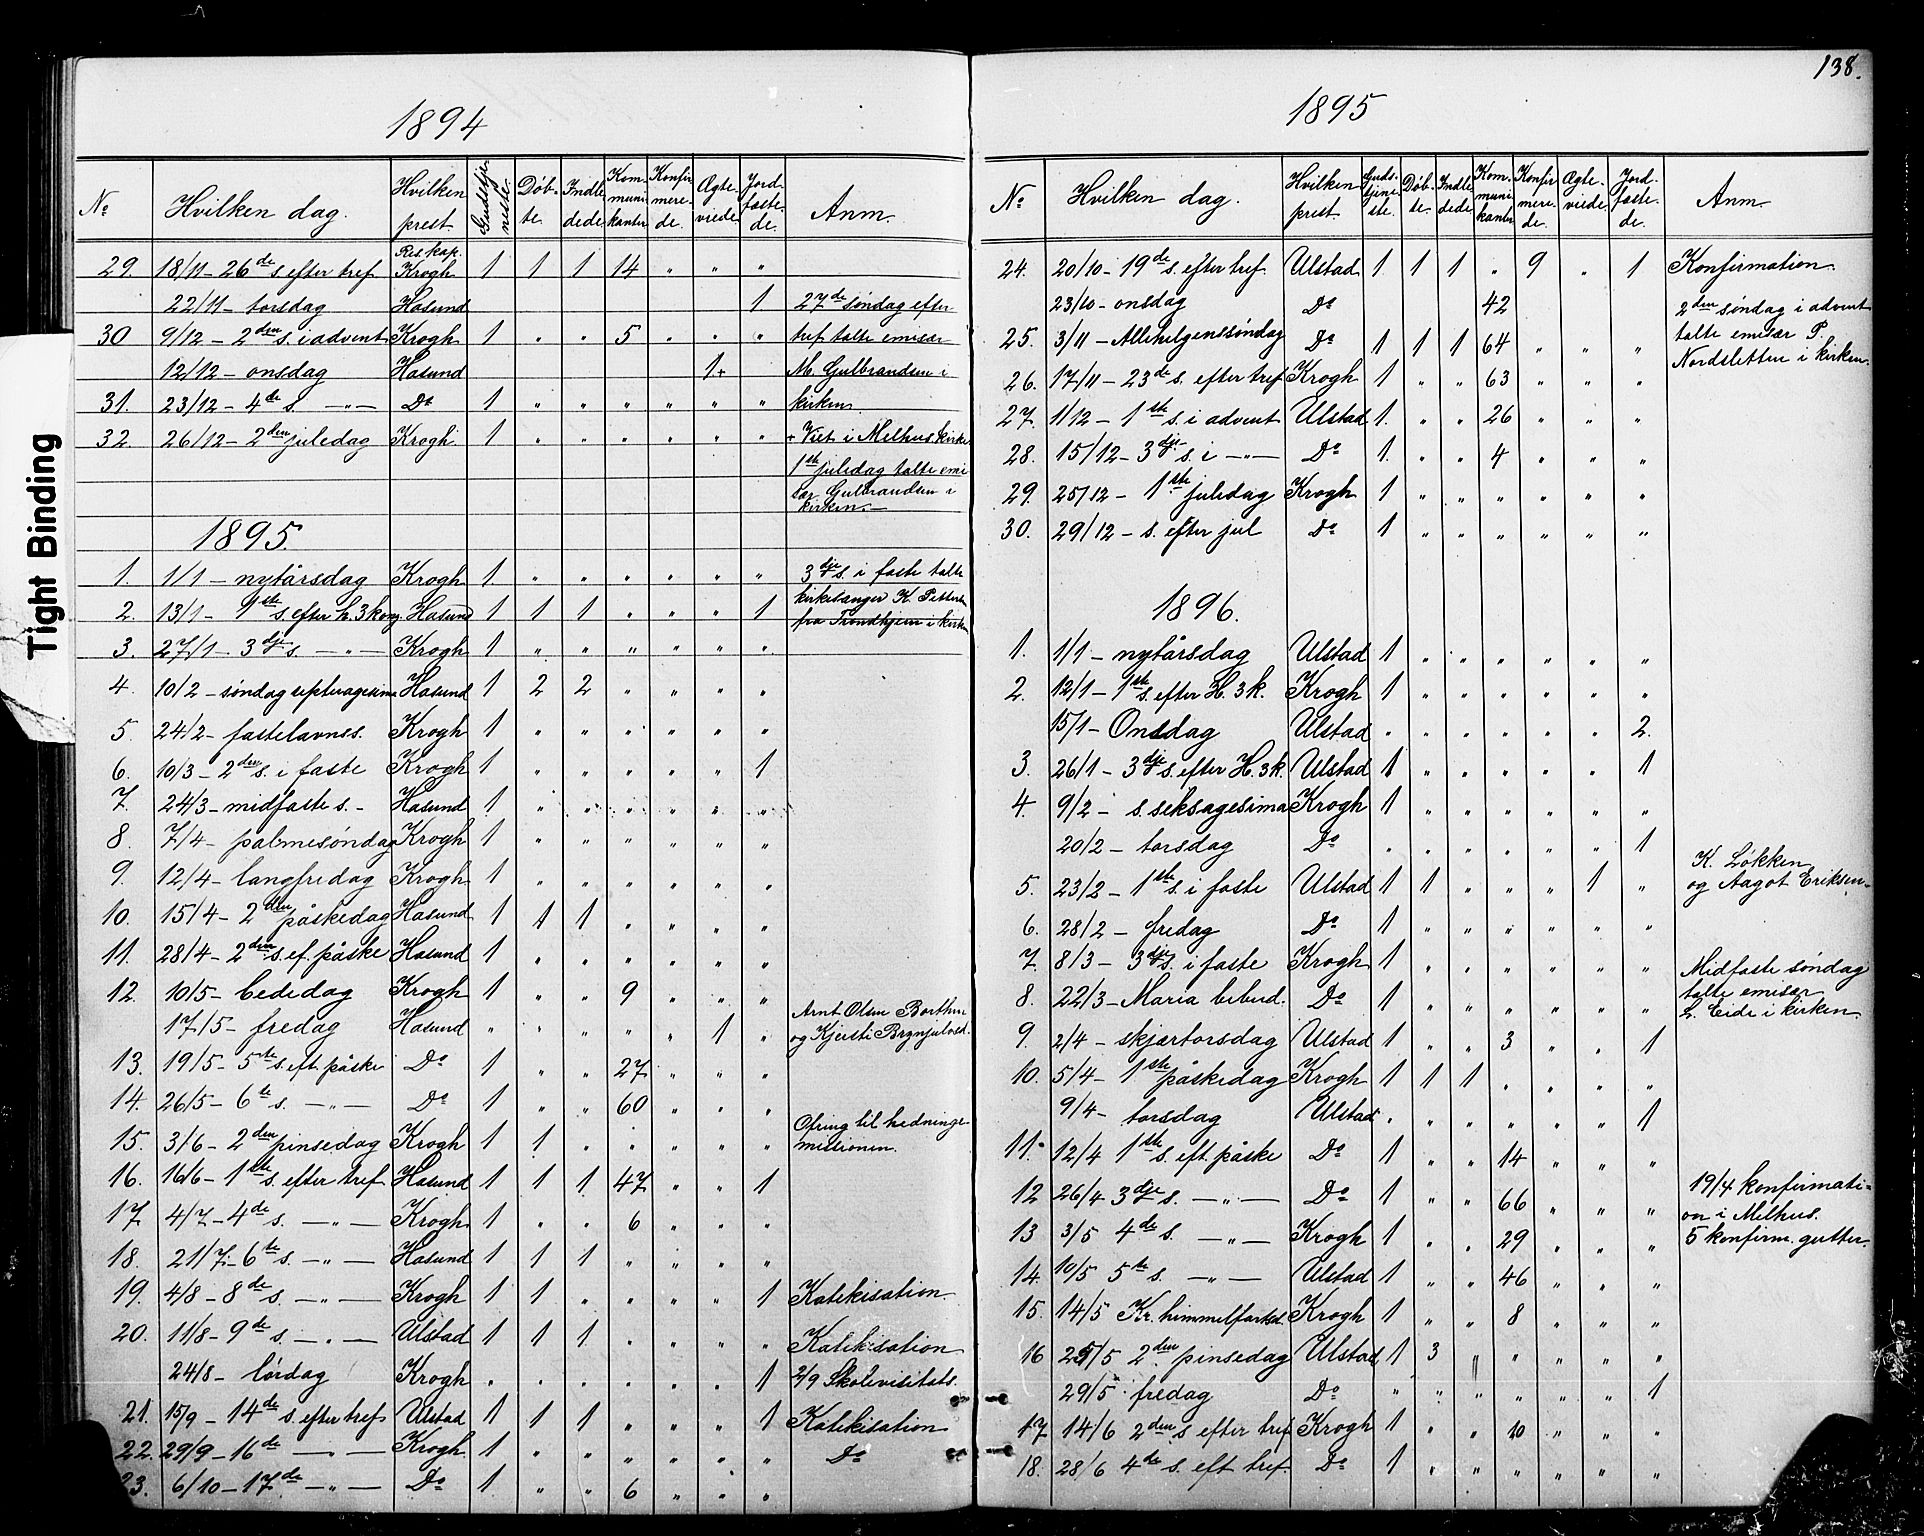 138.
1894
No Hvilken dag. Hvilken prest. Gudstjeneste. Døbte. Indledede. Kommunikanter Konfirmerede. Ægteviede. Jordfæstede. Anm.
Res. kap.
29. 18/11 - 26de s. efter tref. Krogh 1 1 1 14 " " "
22/11 - torsdag Hasund 1 27de søndag efter
30 9/12 - 2den s. i advent Krogh 1 " " 5 " " " tref. talte emisær
12/12 - onsdag Hasund 1+ M. Gulbrandsen i
31. 23/12 - 4de s. — " — Do 1 " " " " " " kirken.
32. 26/12 - 2den juledag Krogh 1 " " " " " " + Viet i Melhus kirke
1ste juledag talte emi
sær Gulbrandsen i
kirken. —
1895.
1. 1/1 - nytårsdag Krogh 1. " " " " " " 3dje s. i faste talte
2. 13/1 - 1ste s. efter h. 3 kong. Hasund 1 1 1 " " " 1 kirkesanger K. Pettersen
fra Trondhjem i kirken
3. 27/1 - 3dje s. — " — Krogh 1 " " " " " "
4. 10/2 - søndag septuagesima Hasund 1 2 2 " " " "
5. 24/2 - fastelavnss. Krogh 1 " " " " " "
6. 10/3 - 2den s. i faste Krogh 1 " " " " " 1
7. 24/3 - midfaste s. - Hasund 1 " " " " " "
8. 7/4 - palmesøndag Krogh 1 " " " " " "
9. 12/4 - langfredag Krogh 1 " " " " " "
10. 15/4 - 2den påskedag Hasund 1 1 1 " " " "
11. 28/4 - 2den s. ef. påske Hasund 1 " " " " " "
12. 10/5 - bededag Krogh 1 " " 9 " " " Arnt Olsen Borthen
17/5 - fredag Hasund " " " " " 1 " og Kjersti Brynjulvsd.
13. 19/5 - 5te s. eft. påske Do 1 " " 27 " " "
14. 26/5 - 6te s. — " — Do 1 " " 60 " " " Ofring til hedninge-
15. 3/6 - 2den pinsedag Krogh 1 1 " " " " " missionen.
16. 16/6 - 1ste s. efter tref. Hasund 1 1 1 47 " " 1
17 4/7 - 4de s. — " — Krogh 1 " " 6 " " "
18. 21/7 - 6te s. — " — Hasund 1 1 1 " " " "
19. 4/8 - 8de s. — " — Krogh 1 1 " " " " 1 Katekisation.
20. 11/8 - 9de s. — " — Ulstad 1 1 1 " " " " Katekisation
24/8 - lørdag Krogh " " " " " " 1 2/9 Skolevisitats.
21. 15/9 - 14de s. efter tref. Ulstad 1 1 1 " " " 1 Katekisation
22. 29/9 - 16de — " — Krogh 1 " " " " " " Do
23. 6/10 - 17de — " — Do 1 " " 6 " " "
1895
No Hvilken dag. Hvilken prest. Gudstjeneste. Døbte. Indledede. Kommunikanter Konfirmerede. Ægteviede. Jordfæstede. Anm.
24. 20/10 - 19de s. efter tref. Ulstad 1 1 1 " 9 " 1 Konfirmation.
23/10 - onsdag Do 42 2den søndag i advent
25. 3/11 - Allehelgenssøndag Do 1 1 1 64 " " " talte emisær P.
26. 17/11 - 23de s. efter tref Krogh 1 " " 63 " " " Nordsletten i kirken.
27. 1/12 - 1ste s. i advent Ulstad 1. " " 26 " " "
28. 15/12 - 3dje s. i — " — Do 1. " " 4 " " "
29. 25/12 - 1ste juledag Krogh 1 " " " " " "
30. 29/12 - s. efter jul Do 1 " " " " " "
1896.
1. 1/1 - nytårsdag Ulstad 1 " " " " " "
2. 12/1 - 1ste s. efter H. 3 k. Krogh 1 " " " " " "
15/1 - Onsdag Ulstad " " " " " " 2.
3. 26/1 - 3dje s. efter H. 3 k. Ulstad 1 " " " " " 1
4. 9/2 - s. seksagesima Krogh 1 " " " " " "
20/2 - torsdag Do " " " " " " 1 K. Løkken
5. 23/2 - 1ste s. i faste Ulstad 1 1 " " " 1 " og Aagot Eriksen.
6. 28/2 - fredag Do 1 " " " " " "
7. 8/3 - 3dje s. i faste Krogh 1 " " " " " " Midfaste søndag
8. 22/3 - Maria bebud. Do 1 " " " " " " talte emisær
L. Eide i kirken.
9. 2/4 - skjærtorsdag Ulstad 1 " " 3 " " 1
10. 5/4 - 1ste påskedag Krogh 1 1 1 " " " "
9/4 - torsdag Ulstad " " " " " " 1
11. 12/4 1ste s. eft. påske Do 1 " " 14 " " "
12 26/4 3dje s. — " — Do 1 " " 66 " " " 19/4 konfirmati-
on i Melhus.
13 3/5 4de s. — " — Krogh 1 " " 29 " " " 5 konfirm. gutter.
14. 10/5 5te s. — " — Ulstad 1 " " 46 " " "
15. 14/5 Kr. himmelfartsd. Krogh 1 " " 8 " " "
16 25/5 2den pinsedag Ulstad 1 3 " " " " "
29/5 fredag Do " " " " " " 1
17 14/6 2den s. efter tref. Krogh 1 " " 10 " " "
18. 28/6 4de s. eft. tref. Do 1 " " " " " "
Tight Binding